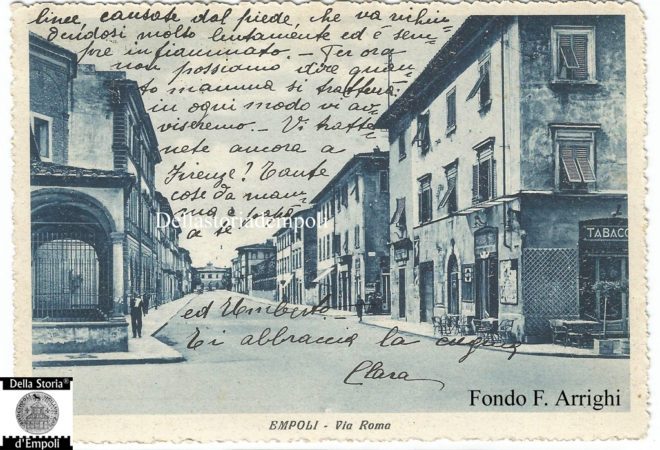 linee, causate dal piede, che va richiu
dendosi molto lentamente ed è sem=
pre infiammato. - Per ora
non possiamo dire quan=
to mamma si tratterrà
in ogni modo vi av=
viseremo. - Vi tratte=
nete ancora a
Firenze? Tante
cose da mam=
ma e
Dellastoriadempoli
a te
ed Umberto
Ti abbraccia la cugina
Clara
TABACC
Fondo F. Arrighi
EMPOLI - Via Roma
Della Storia®
d'Empoli